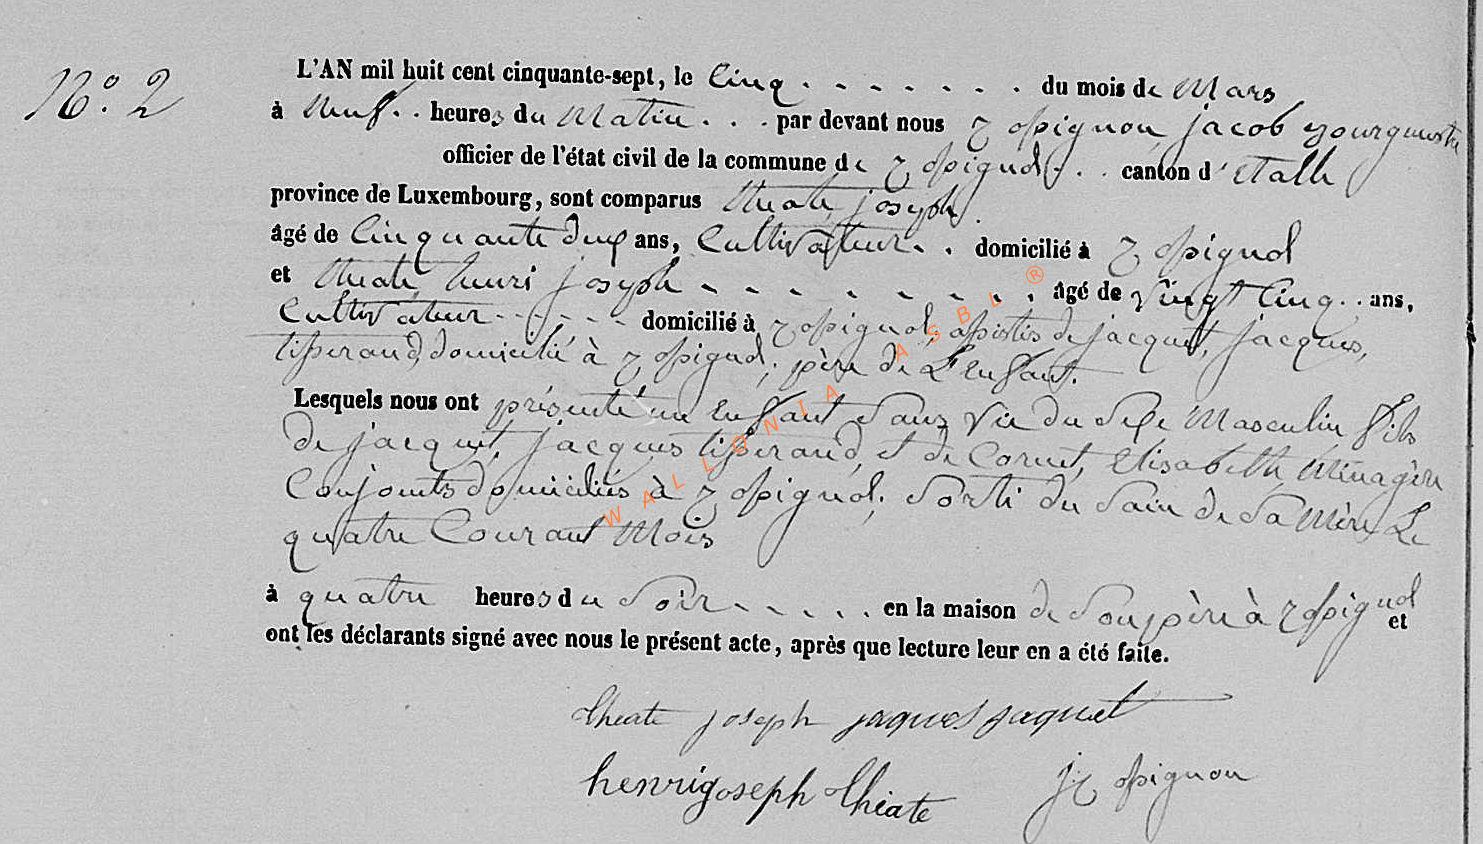 N.° 2
L'AN mil huit cent cinquante-sept, le Cinq . . . . . . . . du mois de Mars
à Neuf . . heures du Matin . . . par devant nous Jacob Bourguestre
officier de l'état civil de la commune de . . canton d'Etalle
province de Luxembourg, sont comparus Theate, joseph
âgé de Cinquante deux ans, Cultivateur . . domicilié à
et Theate, henri joseph . . . . . . . . . âgé de vingt Cinq . . ans,
Cultivateur . . . . . domicilié à assistés de jacquet, jacques,
tisserand, domicilié à père de L'Enfant.
Lesquels nous ont présenté un Enfant Sans Vie du Sexe Masculin fils
de jacquet, jacques tisserand, et de Cornet, Elisabeth Ménagère
Conjoints domiciliés à Sorti du Sain de Sa Mère Le
quatre Courant Mois
à quatre heures du Soir . . . . . en la maison de Son père à et
ont les déclarants signé avec nous le présent acte, après que lecture leur en a été faite.
theate joseph jaques jaquet
henrigoseph theate
WALLONIA ASBL ®